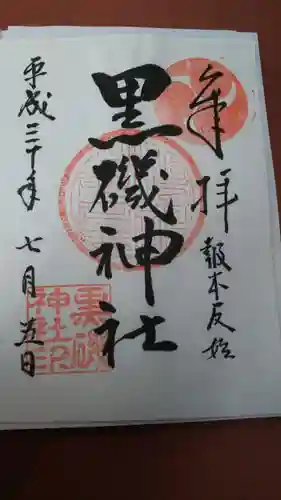 奉拝
報本反始
黒磯神社
平成三十年七月五日
黒磯
神社印